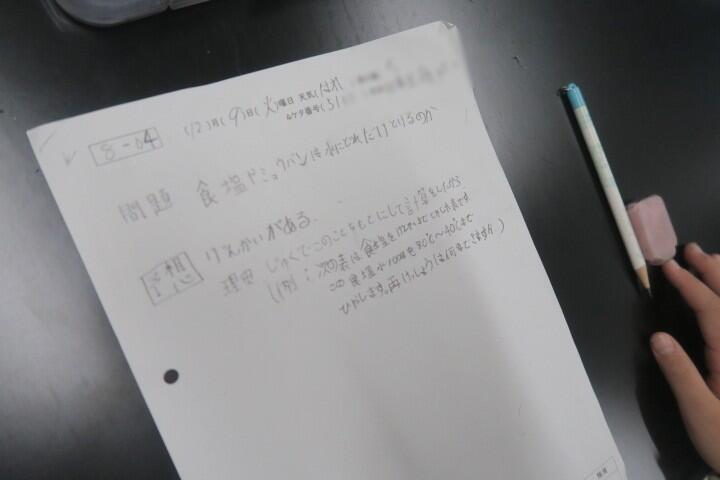 8-04
(12)月(9)日(火)曜日 天気(はれ)
6ケタ番号(31
問題 食塩やミョウバンは水にどれだけとけるのか
予想 りえかいがある。
理由 じゅくでこのことをもとにして計算をしたから
(例:次の表は食塩を
この食塩水100gを80℃〜40℃まで
ひやします。再けっしょうは何gでてきますか)